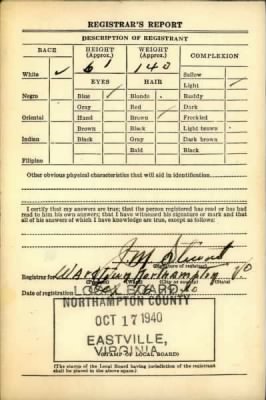 REGISTRAR'S REPORT
DESCRIPTION OF REGISTRANT
RACE HEIGHT (Approx.) WEIGHT (Approx.) COMPLEXION
White ✓ 6 1 140 Sallow
Light ✓
EYES HAIR
Negro Blue ✓ Blonde Ruddy
Gray Red Dark
Oriental Hazel Brown ✓ Freckled
Brown Black Light brown
Indian Black Gray Dark brown
Bald Black
Filipino
Other obvious physical characteristics that will aid in identification
I certify that my answers are true; that the person registered has read or has had read to him his own answers; that I have witnessed his signature or mark and that all of his answers of which I have knowledge are true, except as follows:
(Signature of registrar)
Registrar for Northampton
Date of registration
LOCAL BOARD
NORTHAMPTON COUNTY
OCT 17 1940
EASTVILLE,
VIRGINIA
(STAMP OF LOCAL BOARD)
(The stamp of the Local Board having jurisdiction of the registrant shall be placed in the above space.)